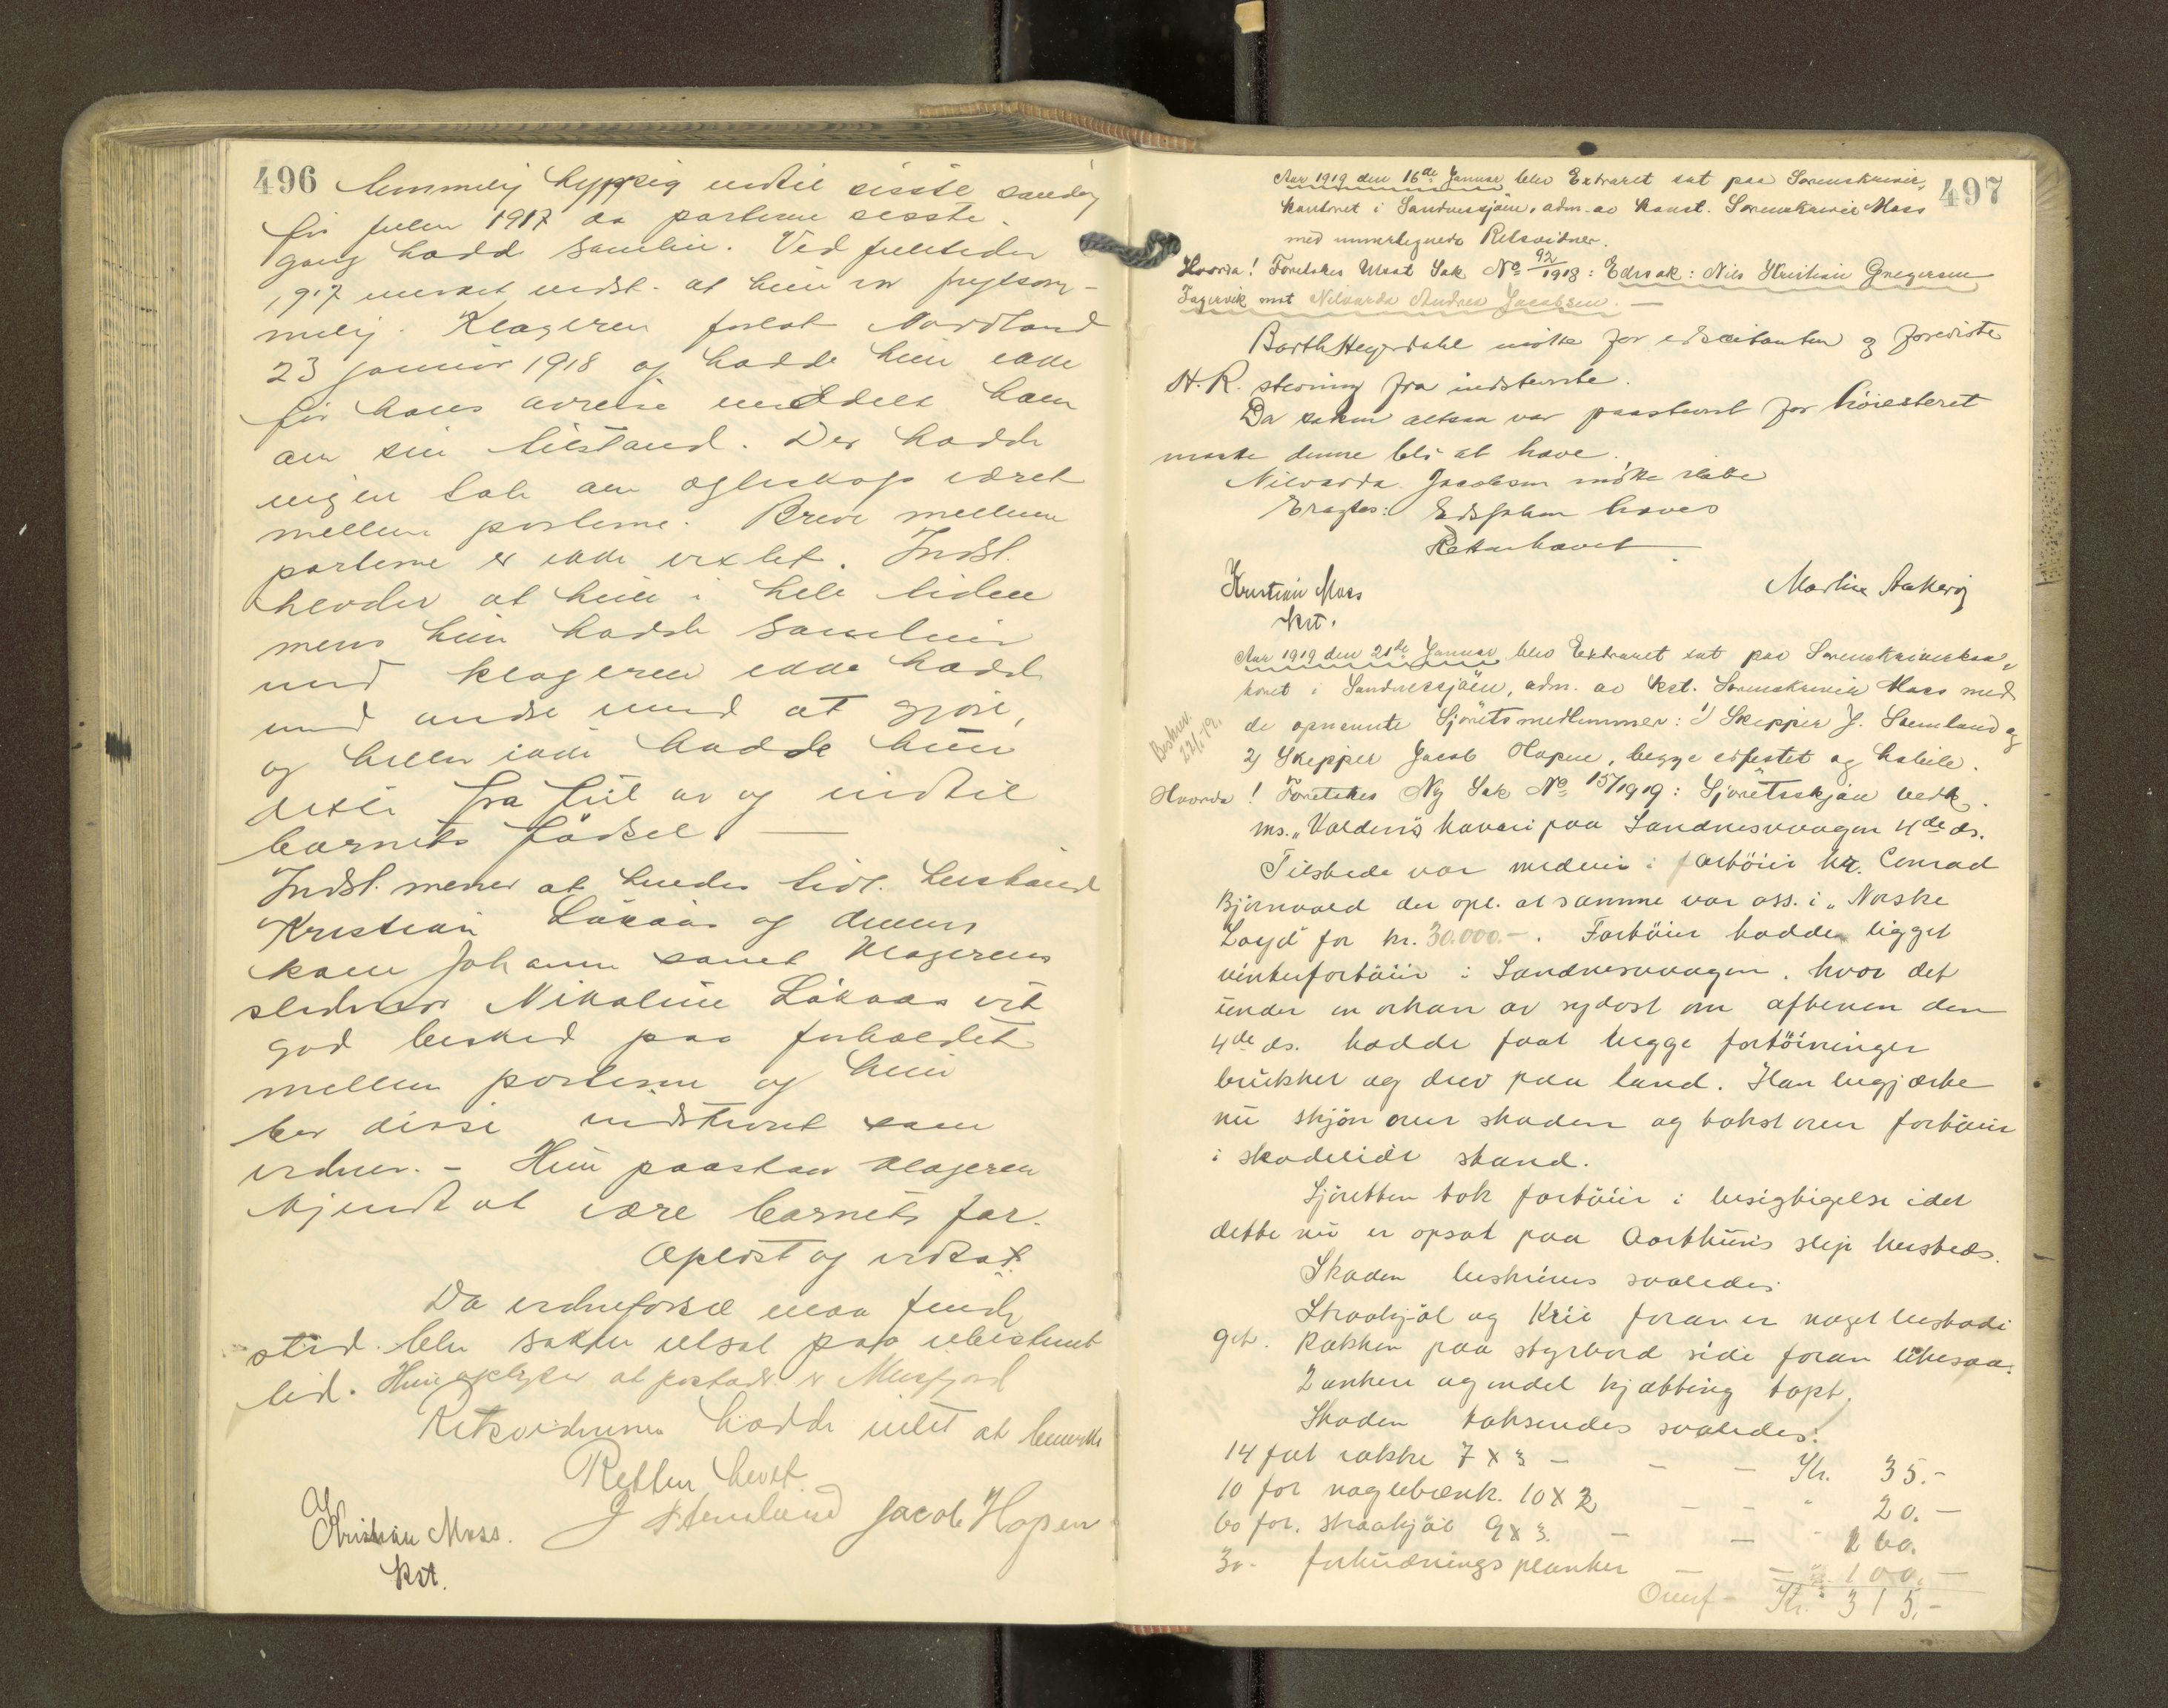 496
temmelig hyppig indtil sisste søndag
før julen 1917 da parterne sisste
gang hadde samleie. Ved juletider
1917 merket indst. at hun var frugtsom-
melig. Klageren forlot Nordland
23 januar 1918 og hadde hun ikke
før hans avreise meddelt ham
om sin tilstand. Der hadde
ingen tale om egteskap været
mellem parterne. Breve mellem
parterne er ikke vekslet. Indst.
hevder at hun i hele tiden
mens hun hadde samleie
med klageren ikke hadde
med andre mænd at gjøre,
og heller ikke hadde hun
dette fra jul av og indtil
barnets fødsel. —
Indst. mener at hendes tidl. husbond
Kristian Løkaas og dennes
kone Johanna samt klagerens
Nikoline Løkaas vet
god besked paa forholdet
mellem parterne og hun
ber disse indstevnt som
vidner. - Hun paastaar klageren
kjendt at være barnets far.
Oplæst og vedtat.
Da vidneførsel maa finde
sted blev saken utsat paa ubestemt
tid. Hun oplyser at postadr. er Musfjord
Retsvidnerne hadde intet at bemerke
Retten hevet.
Kristian Mass. J Stemland Jacob Hopen
kst.
497
Aar 1919 den 16de Januar blev Extraret sat paa Sorenskriver,
kontoret i Sandnessjøen, adm. av konst. Sorenskriver Mass
med undertegnede Retsvidner.
Hvorda! Foretokes Utsat Sak No 92/1918: Edssak: Nils Kristian Gregersen
Fagervik mot Nilvarda Andrea Jacobsen. —
Barth Heyerdahl møtte for edscitanten og foreviste
H.R. stevning fra indstevnte.
Da saken altsaa var paastevnt for høiesteret
maatte denne bli at hæve.
Nilvarda Jacobsen møtte ikke
Eragtes: Edssaken hæves
Retten hævet
Kristian Mass Martin Aakerøy
kst.
Aar 1919 den 21de Januar blev Extraret sat paa Sorenskriverkon,
toret i Sandnessjøen, adm. av kst. Sorenskriver Mass med
de opnævnte Sjøretsmedlemmer: 1) Skipper J. Stemland og
2) Skipper Jacob Hopen, begge edfestet og habile.
Beskrev.
22/1.19.
Hvorda! Foretokes Ny Sak No 15/1919: Sjøretsskjøn vedk.
ms. "Valdens" havari paa Sandnesvaagen 4de ds.
Tilstede var rederen i fartøiet hr. Conrad
Bjørnvold der opl. at samme var ass. i "Norske
Loyd" for kr. 30.000.-. Fartøiet hadde ligget
vinterfortøiet i Sandnesvaagen, hvor det
under en orkan av sydost om aftenen den
4de ds. hadde faat begge fortøininger
brukket og drev paa land. Han begjærte
nu skjøn over skaden og takst over fartøiet
i skadelidt stand.
Sjøretten tok fartøiet i besigtigelse idet
dette nu er opsat paa Aarthuns slip hersteds.
Skaden beskrives saaledes:
Straakjøl og Kne foran er noget beskadi
get. Rakken paa styrbord side foran likesaa.
2 ankere og endel kjætting tapt.
Skaden taksendes saaledes:
14 fot rakke 7 x 3 - - - Kr. 35.-
10 for naglebænk. 10 x 2 - - " 20.-
60 for. straakjøl 9 x 3. - - " 160.
30- forhudningsplanker - - " 100.-
Overf- Kr. 315,-